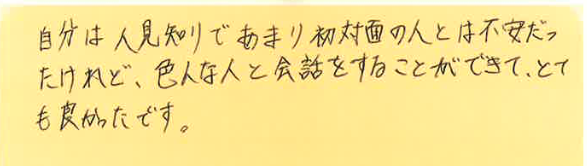 自分は人見知りであまり初対面の人とは不安だっ
たけれど、色んな人と会話をすることができて、とて
も良かったです。